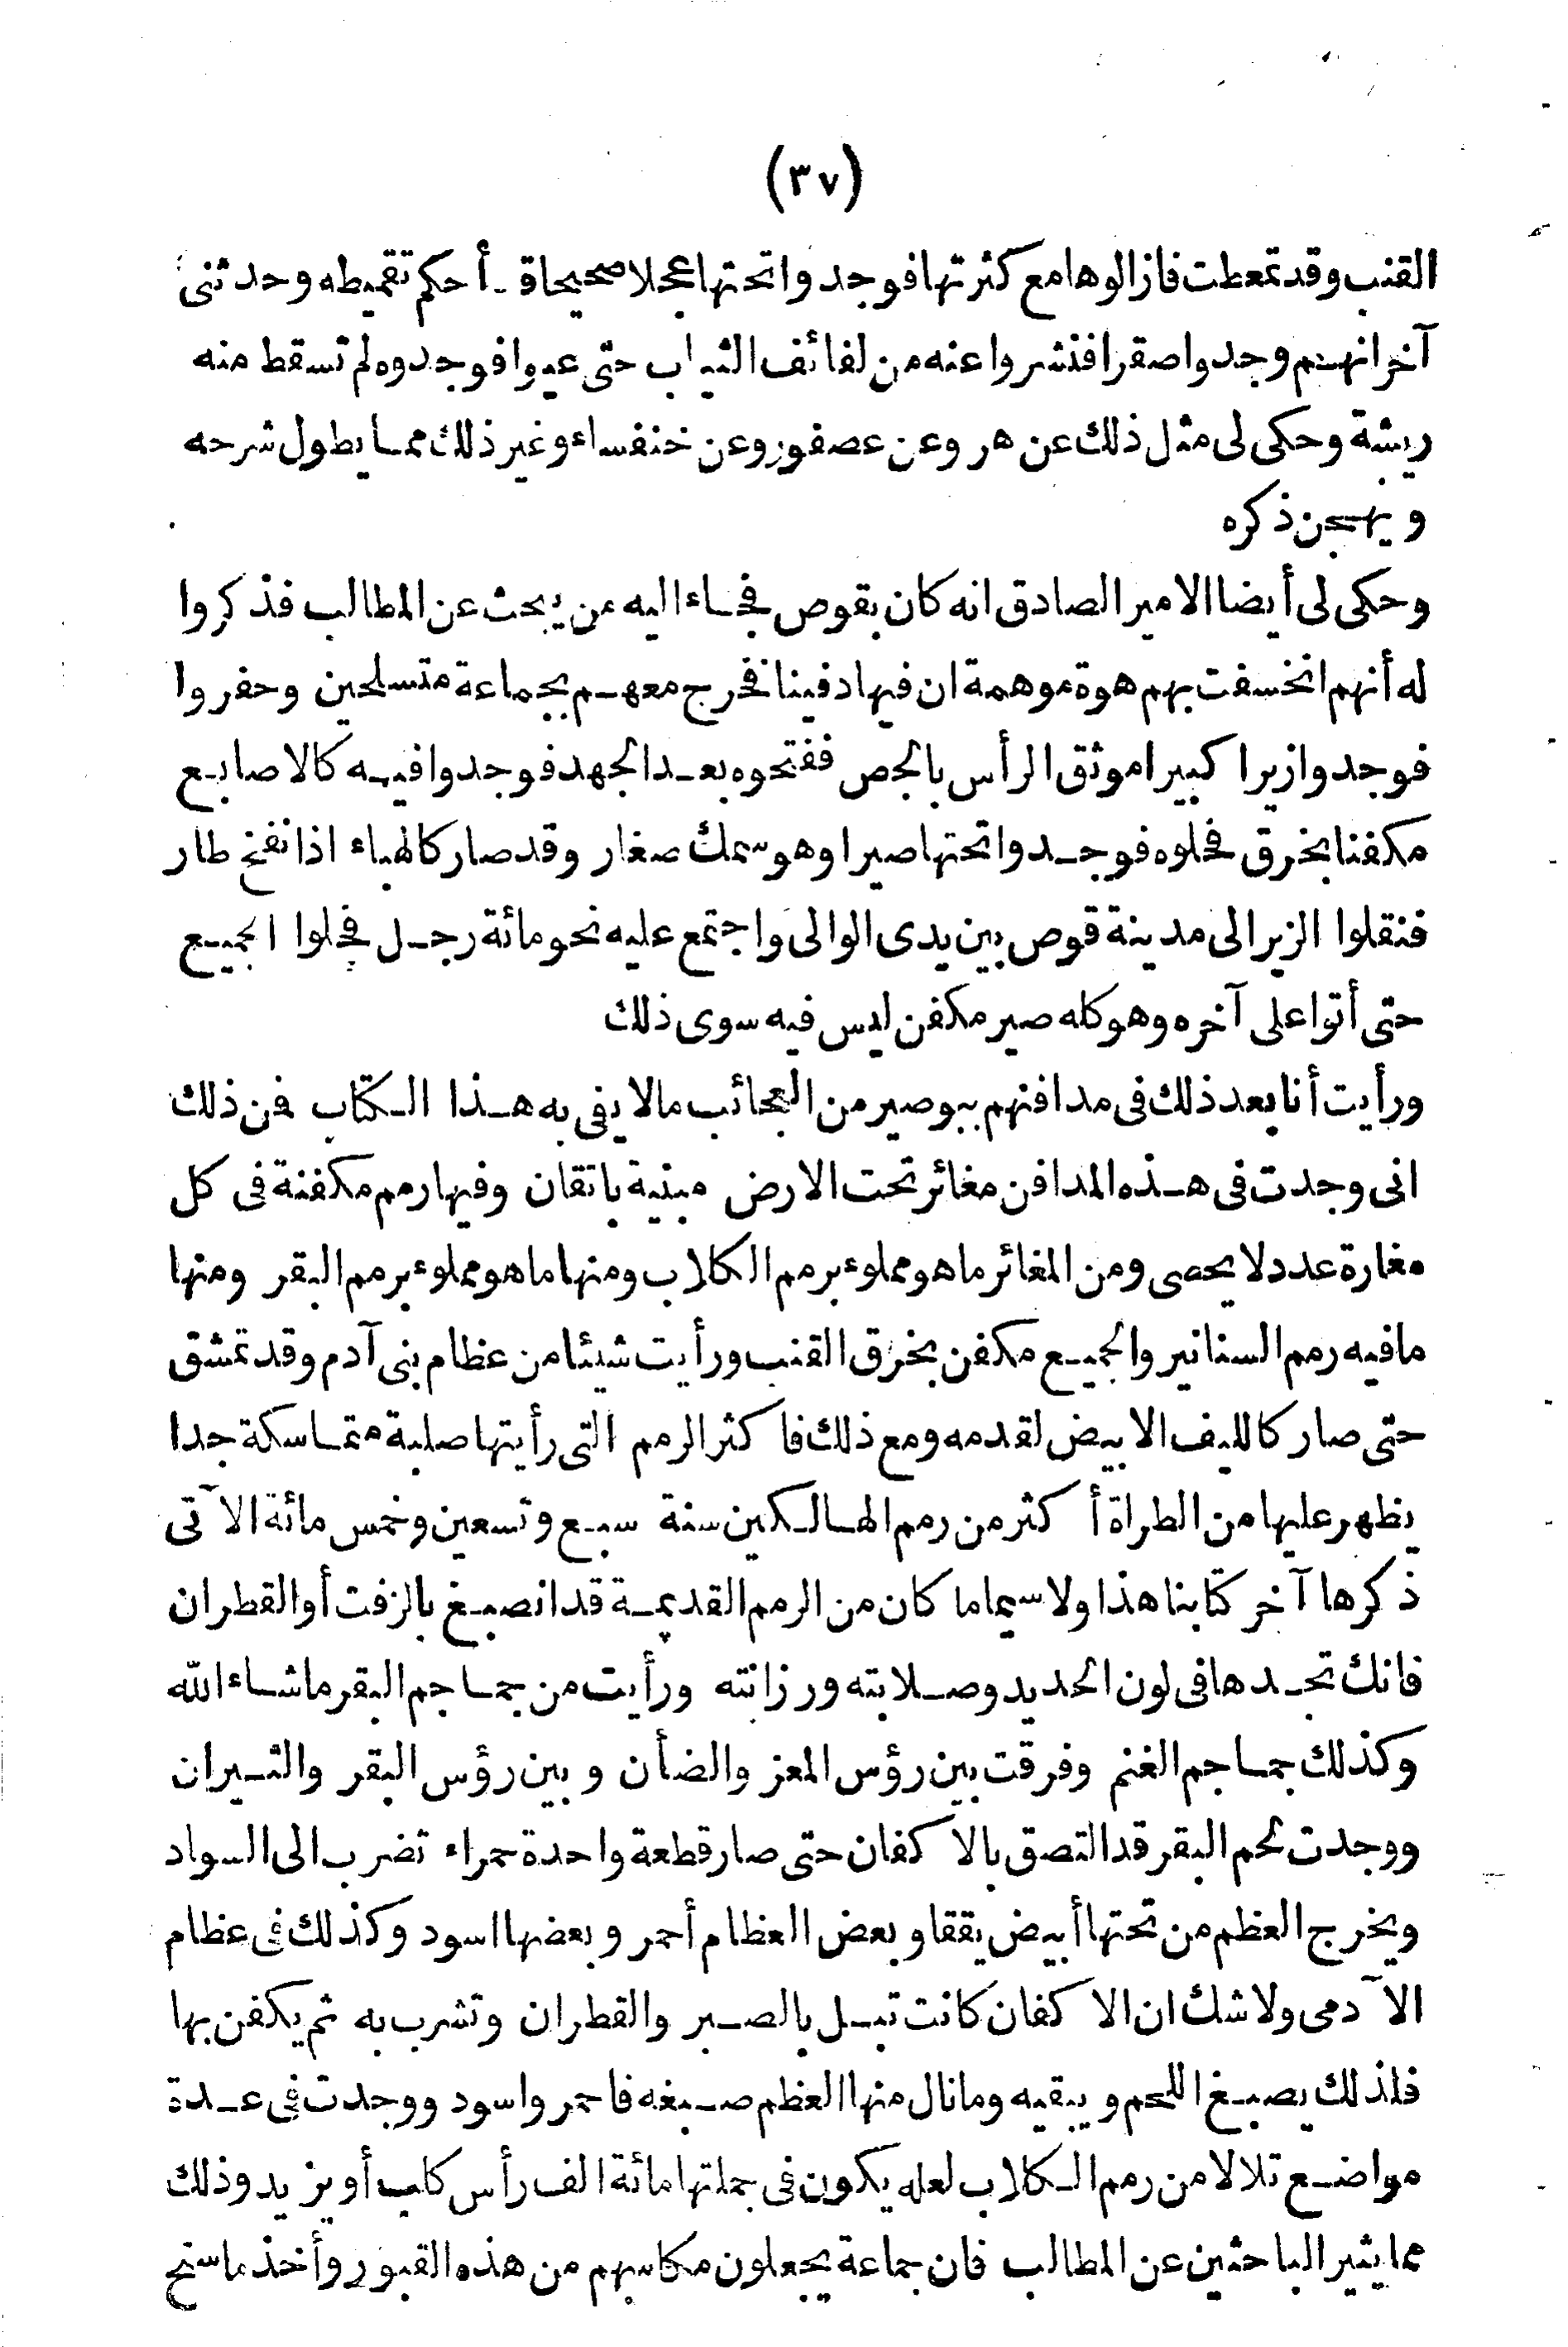 (٣٧)
القنب وقد تمعطت فازالوها مع كثرتها فوجدوا تحتها عجلا صحيحا قد أحكم تقميطه وحدثنى
آخر انهم وجدوا صقرا فنشروا عنه من لفائف الثياب حتى عيوا فوجدوه لم تسقط منه
ريشة وحكى لى مثل ذلك عن هر وعن عصفور وعن خنفساء وغير ذلك مما يطول شرحه
ويهجن ذكره
وحكى لى أيضا الامير الصادق انه كان بقوص فجاء اليه من يبحث عن المطالب فذكروا
له أنهم انخسفت بهم هوة موهمة ان فيها دفينا فخرج معهم بجماعة متسلحين وحفروا
فوجدوا زيرا كبيرا موثق الرأس بالجص ففتحوه بعد الجهد فوجدوا فيه كالاصابع
مكفنا بخرق فحلوه فوجدوا تحتها صيرا وهو سمك صغار وقد صار كالهباء اذا نفخ طار
فنقلوا الزير الى مدينة قوص بين يدى الوالى واجتمع عليه نحو مائة رجل فحلوا الجميع
حتى أتوا على آخره وهو كله صير مكفن ليس فيه سوى ذلك
ورأيت أنا بعد ذلك فى مدافنهم ببوصير من العجائب مالا يفى به هذا الكتاب فمن ذلك
انى وجدت فى هذه المدافن مغائر تحت الارض مبنية باتقان وفيها رمم مكفنة فى كل
مغارة عدد لا يحصى ومن المغائر ما هو مملوء برمم الكلاب ومنها ما هو مملوء برمم البقر ومنها
ما فيه رمم السنانير والجميع مكفن بخرق القنب ورأيت شيئا من عظام بنى آدم وقد تمشق
حتى صار كالليف الابيض لقدمه ومع ذلك فاكثر الرمم التى رأيتها صلبة متماسكة جدا
يظهر عليها من الطراة أكثر من رمم الهالكين سنة سبع وتسعين وخمس مائة الآتى
ذكرها آخر كتابنا هذا ولا سيما ما كان من الرمم القديمة قد انصبغ بالزفت أو القطران
فانك تجدها فى لون الحديد وصلابته ورزانته ورأيت من جماجم البقر ما شاء الله
وكذلك جماجم الغنم وفرقت بين رؤس المعز والضأن وبين رؤس البقر والثيران
ووجدت لحم البقر قد التصق بالاكفان حتى صار قطعة واحدة حمراء تضرب الى السواد
ويخرج العظم من تحتها أبيض يققا وبعض العظام أحمر وبعضها اسود وكذلك فى عظام
الآدمى ولا شك ان الاكفان كانت تبل بالصبر والقطران وتشرب به ثم يكفن بها
فلذلك يصبغ اللحم ويبقيه وما نال منها العظم صبغه فاحمر واسود ووجدت فى عدة
مواضع تلالا من رمم الكلاب لعله يكون فى جملتها مائة الف رأس كلب أو يزيد وذلك
مما يثير الباحثين عن المطالب فان جماعة يجعلون مكاسبهم من هذه القبور وأخذ ما سنح